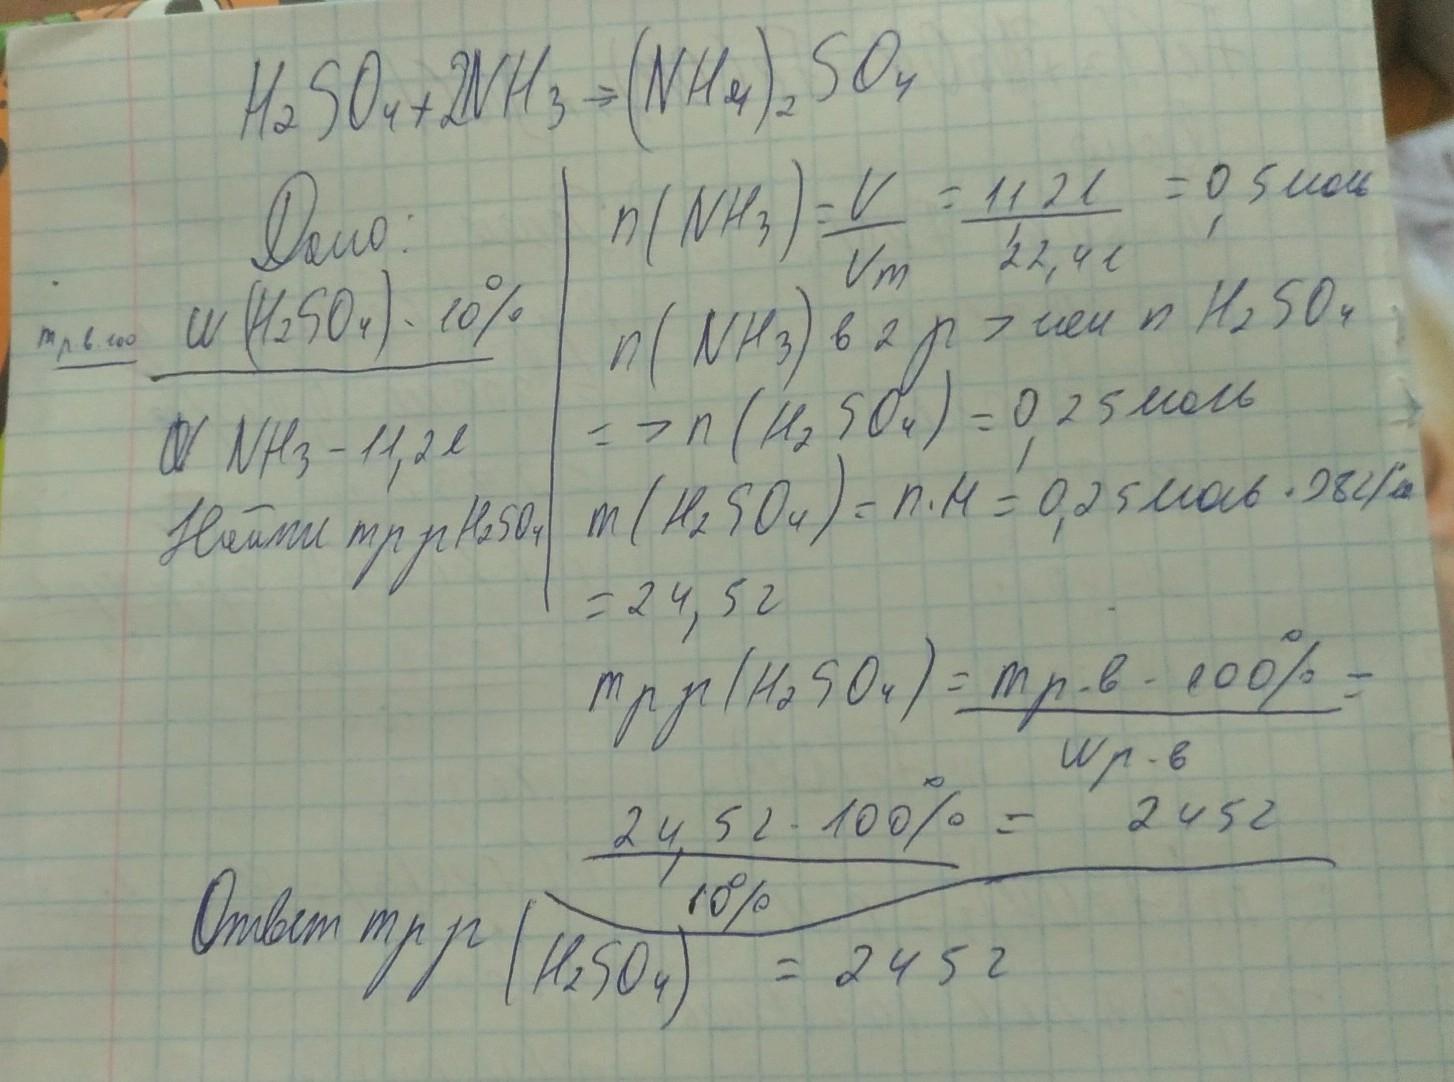 H₂SO₄+2NH₃→(NH₄)₂SO₄
Дано:
W(H₂SO₄) - 10%
V NH₃ - 11,2л
Найти mр-р H₂SO₄
n(NH₃) = V/Vm = 11,2л/22,4л = 0,5 моль
n(NH₃) в 2 р > чем n H₂SO₄
=> n(H₂SO₄) = 0,25 моль
m(H₂SO₄) = n·M = 0,25 моль · 98г/
= 24,5г
mр-р(H₂SO₄) = mр.в · 100%/Wр.в =
24,5г · 100%/10% = 245г
Ответ mр-р (H₂SO₄) = 245г